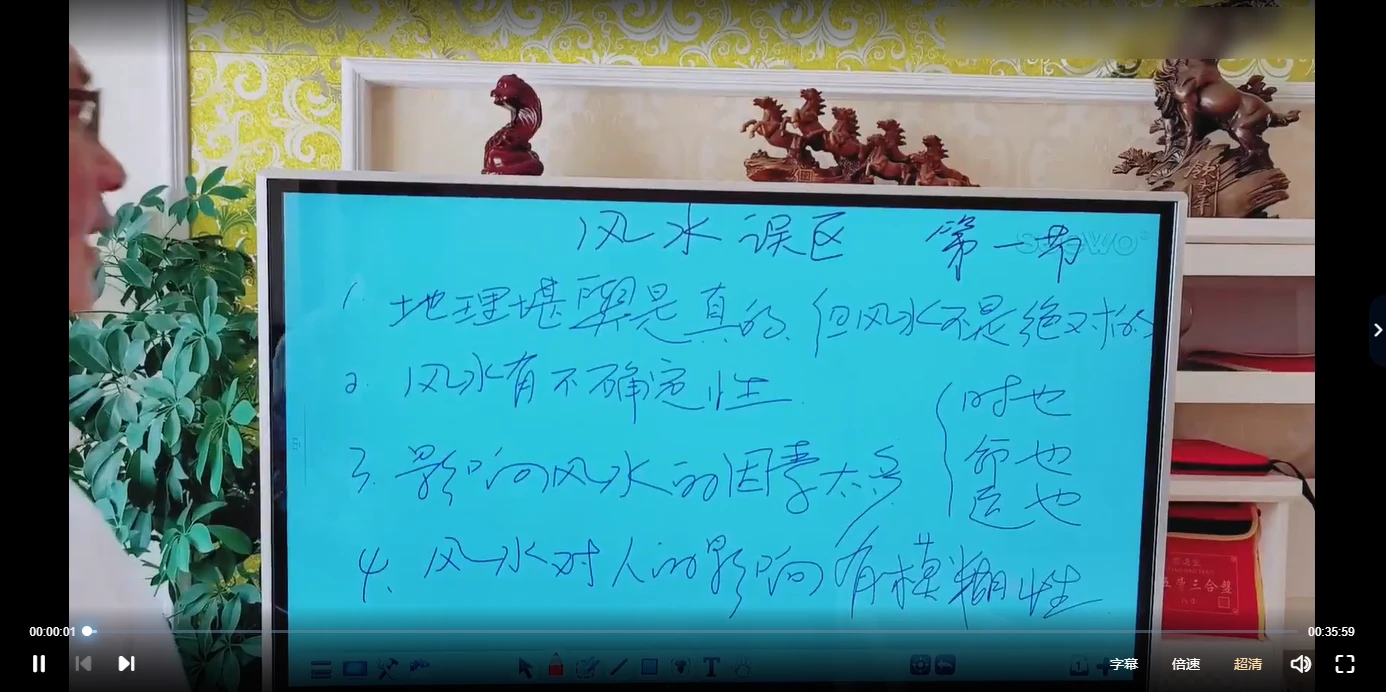 风水误区 第一节
seewo
1. 地理堪舆是真的、但风水不是绝对的
2. 风水有不确定性.
3. 影响风水的因素太多
时也
命也
运也
4. 风水对人的影响有模糊性
三合盘
00:00:01
00:35:59
字幕 倍速 超清